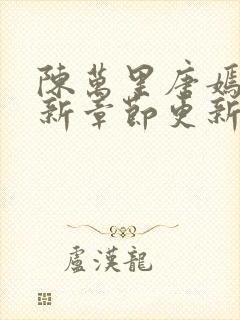 陳萬里唐嫣
新章節更新
盧漢龍